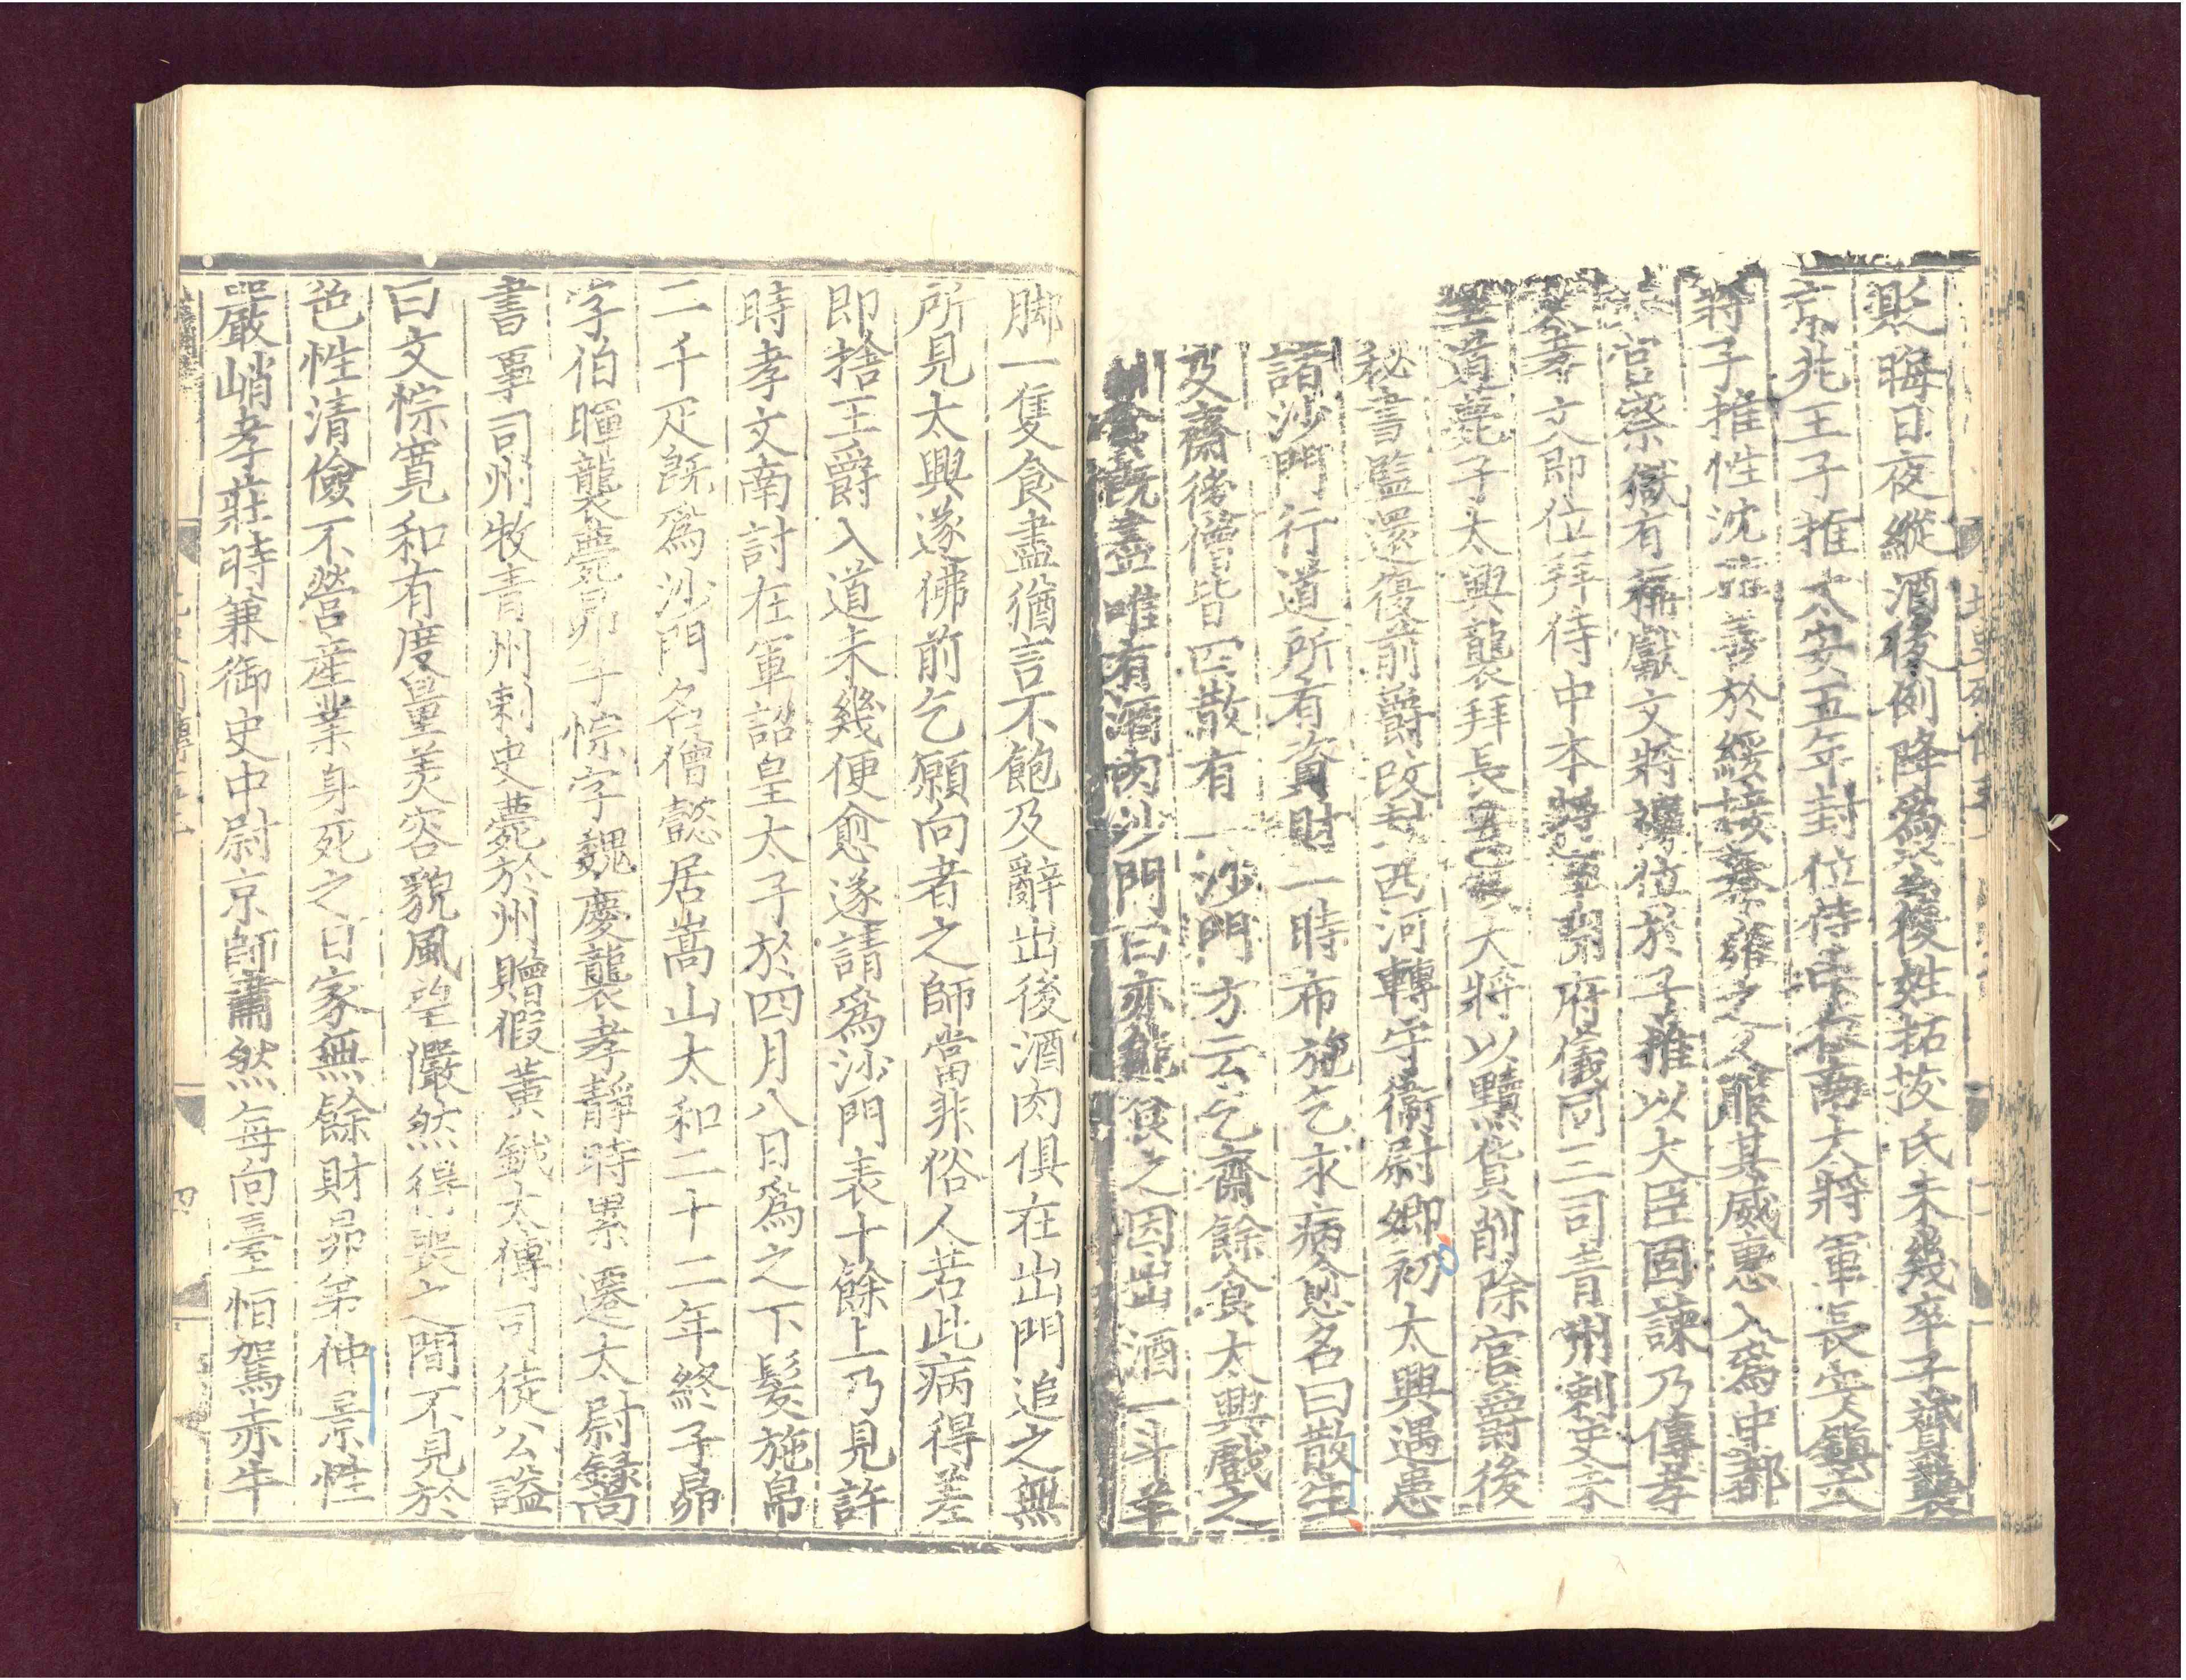 熙晦日夜縱酒後例降爲公後姓拓抜氏未幾卒子賛襲
京兆王子推太安五年封位侍中征南大將軍長安鎮
將子推性沈雅善於綏接秦雍之人服其威惠入爲中都
官察獄有稱獻文將禪位於子推以大臣固諫乃傳孝
文孝文即位拜侍中本將軍開府儀同三司青州刺史未
至道薨子太興襲拜長安鎮大將以黷貨削除官爵後
秘書監還復前爵改封西河轉守衛尉卿初太興遇患
諸沙門行道所有資財一時布施乞求病愈名曰散生
及齋後僧皆四散有一沙門方云乞齋餘食太興戲之
食既盡唯有酒肉沙門曰亦能食之因出酒一斗羊
脚一隻食盡猶言不飽及辭出後酒肉俱在出門追之無
所見太興遂佛前乞願向者之師當非俗人若此病得差
即捨王爵入道未幾便愈遂請爲沙門表十餘上乃見許
時孝文南討在軍詔皇太子於四月八日爲之下髮施帛
二千疋既爲沙門名僧懿居嵩山太和二十二年終子昴
字伯暉襲薨昴子悰字魏慶襲孝靜時累遷太尉錄尚
書事司州牧青州刺史薨於州贈假黃鉞太傅司徒公謚
曰文悰寬和有度量美容貌風望儼然得喪之間不見於
色性清儉不營産業身死之日家無餘財昴弟仲景性
嚴峭孝莊時兼御史中尉京師肅然每向臺恒駕赤牛
四